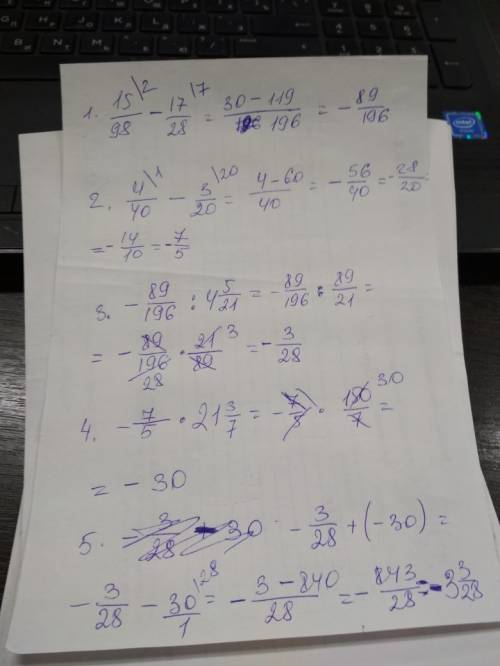 1. 15/98 \2 - 17/28 \7 = (30 - 119)/196 = - 89/196
2. 4/40 \1 - 3/20 \20 = (4 - 60)/40 = - 56/40 = - 28/20 =
= - 14/10 = - 7/5
3. - 89/196 : 4 5/21 = - 89/196 : 89/21 =
= - 89/196 · 21/89 3 = - 3/28
28
4. - 7/5 · 21 3/7 = - 7/5 · 150/7 30 =
= - 30
5. - 3/28 + (-30) =
- 3/28 - 30/1 \28 = - (3 - 840)/28 = - 843/28 = - 3 3/28
intel